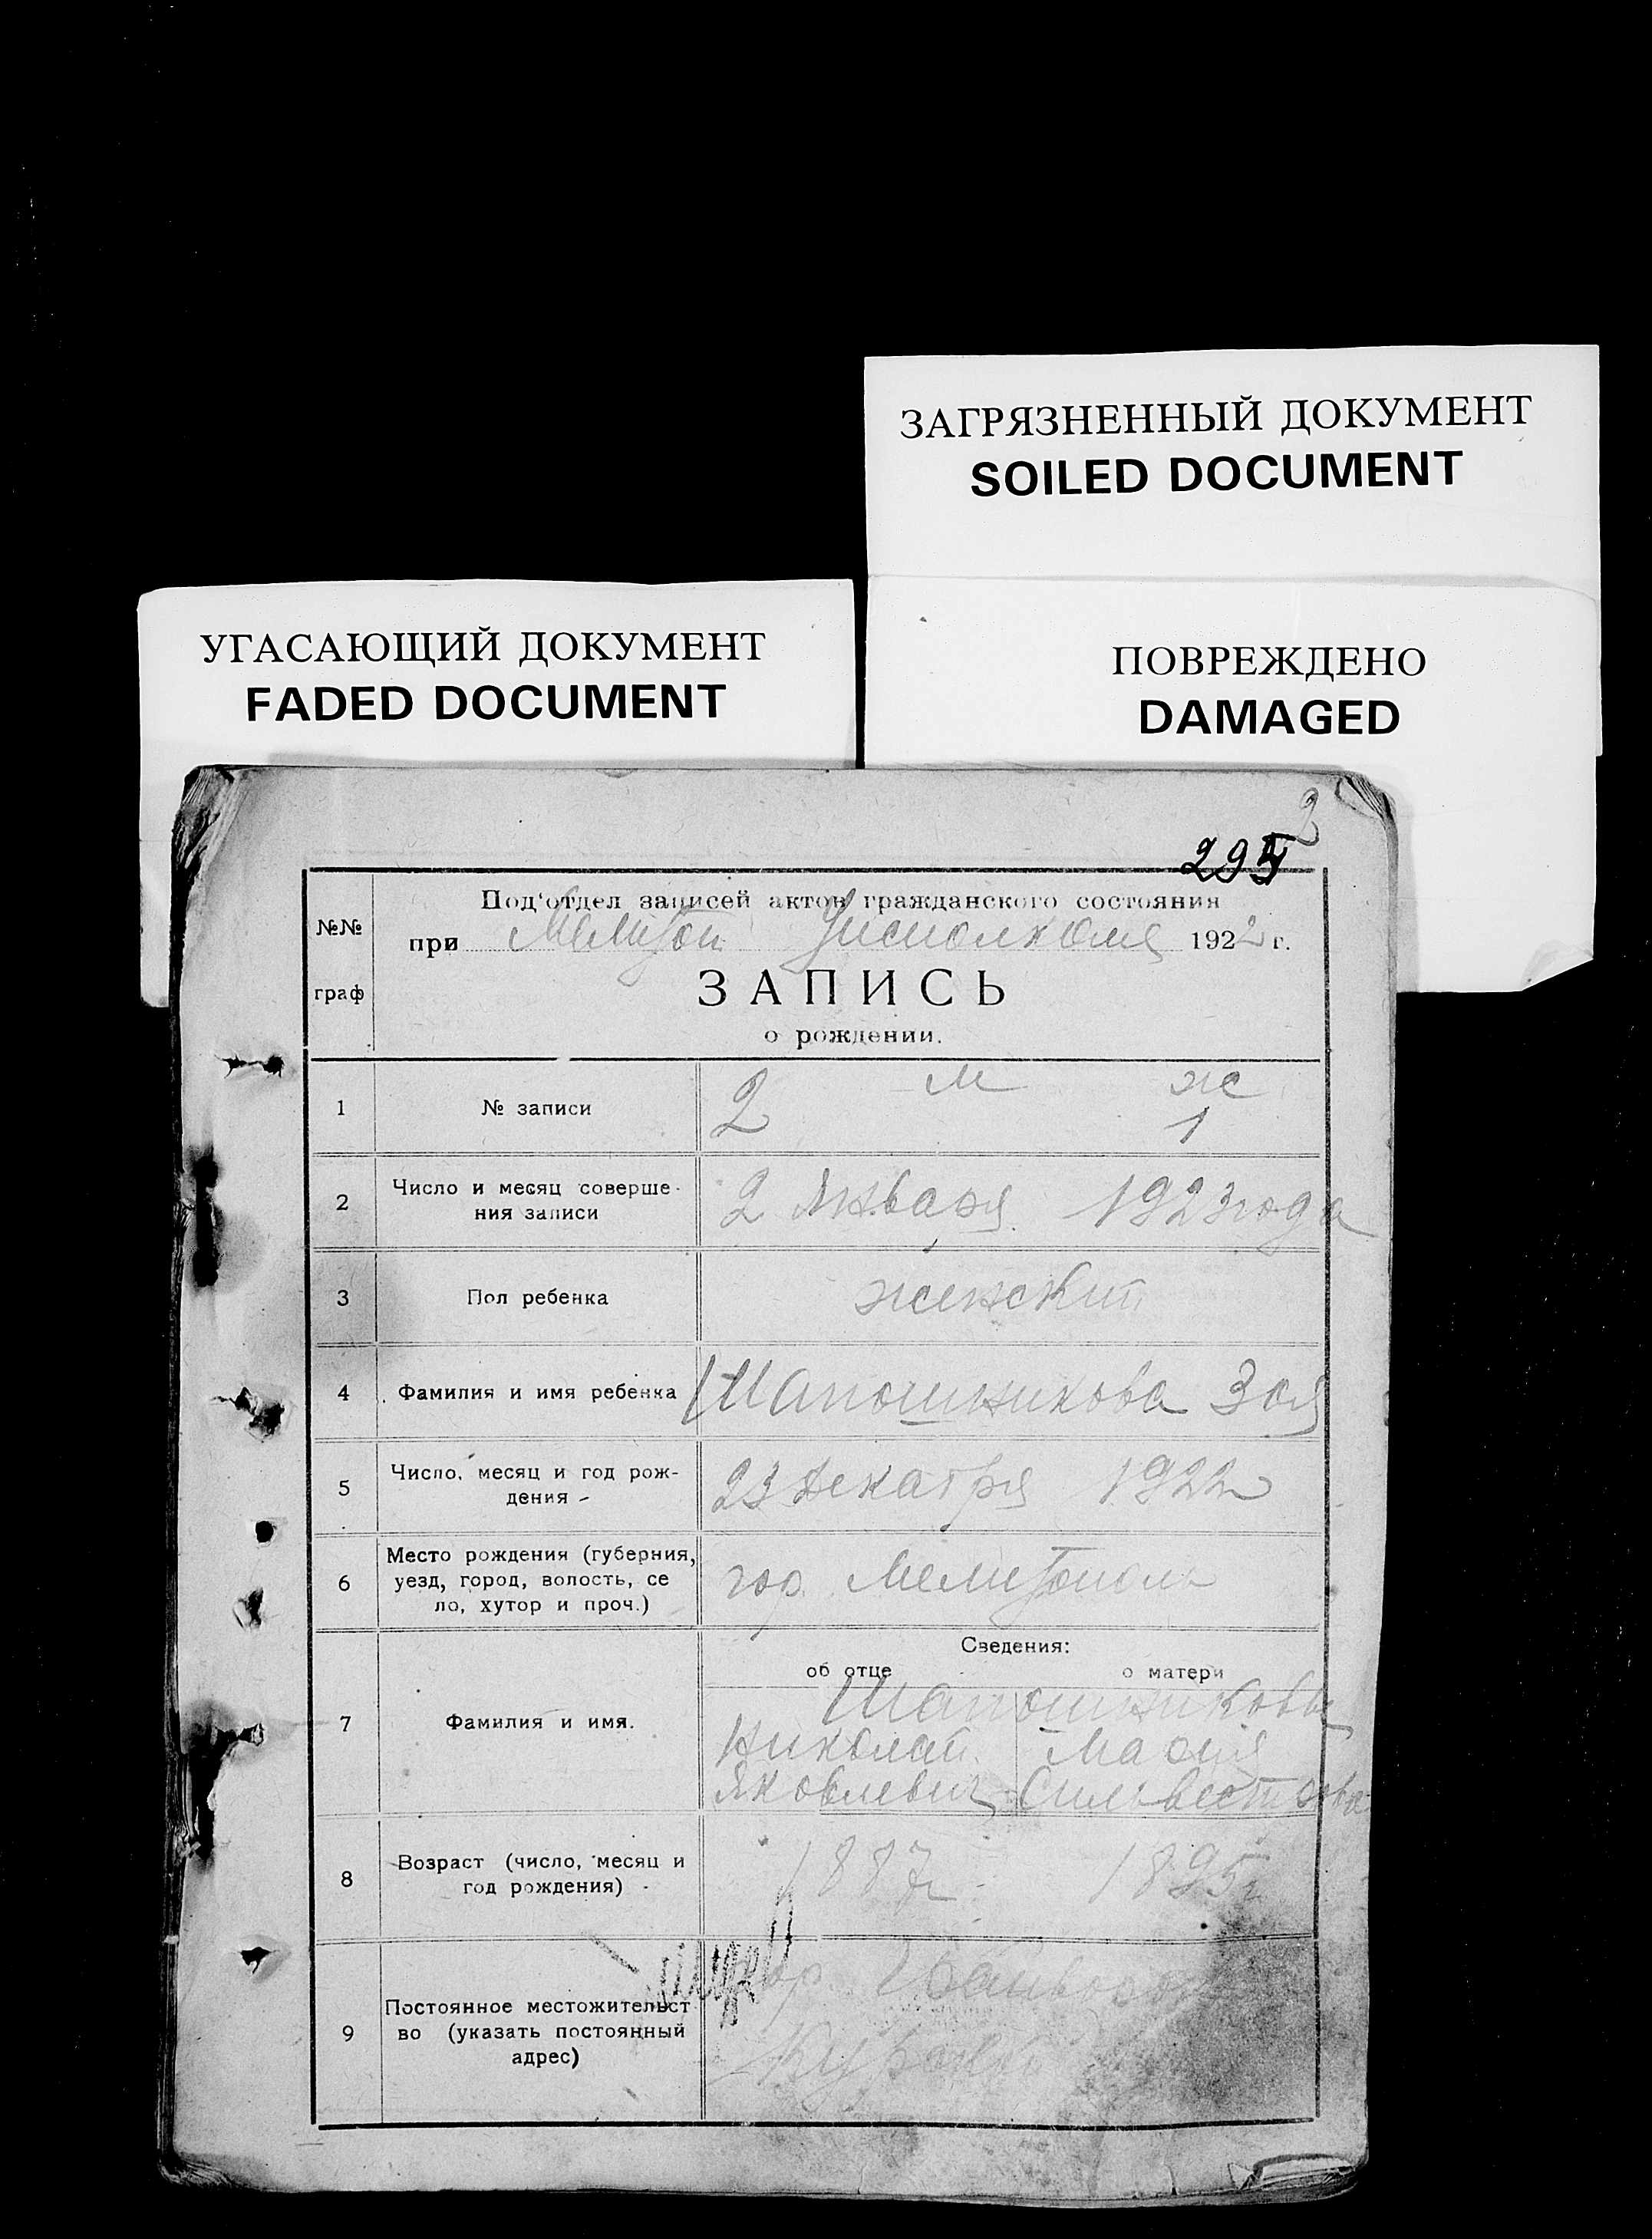 ЗАГРЯЗНЕННЫЙ ДОКУМЕНТ
SOILED DOCUMENT
УГАСАЮЩИЙ ДОКУМЕНТ
FADED DOCUMENT
ПОВРЕЖДЕНО
DAMAGED
2
295
№№
граф
Под'отдел записей актов гражданского состояния
при Мелитоп Уисполкоме 1922 г.
ЗАПИСЬ
о рождении.
1 № записи 2 м ж
1
2 Число и месяц соверше-
ния записи 2 Января 1923 года
3 Пол ребенка женский
4 Фамилия и имя ребенка Шапошникова Зоя
5 Число, месяц и год рож-
дения - 23 декабря 1922
6 Место рождения (губерния,
уезд, город, волость, се
ло, хутор и проч.) гор. Мелитополь
Сведения:
об отце о матери
7 Фамилия и имя. Шапошниковы
Николай Мария
Яковлевич Сильвестрова
8 Возраст (число, месяц и
год рождения) - 1887г. 1895г
9 Постоянное местожительст
во (указать постоянный
адрес) гор.